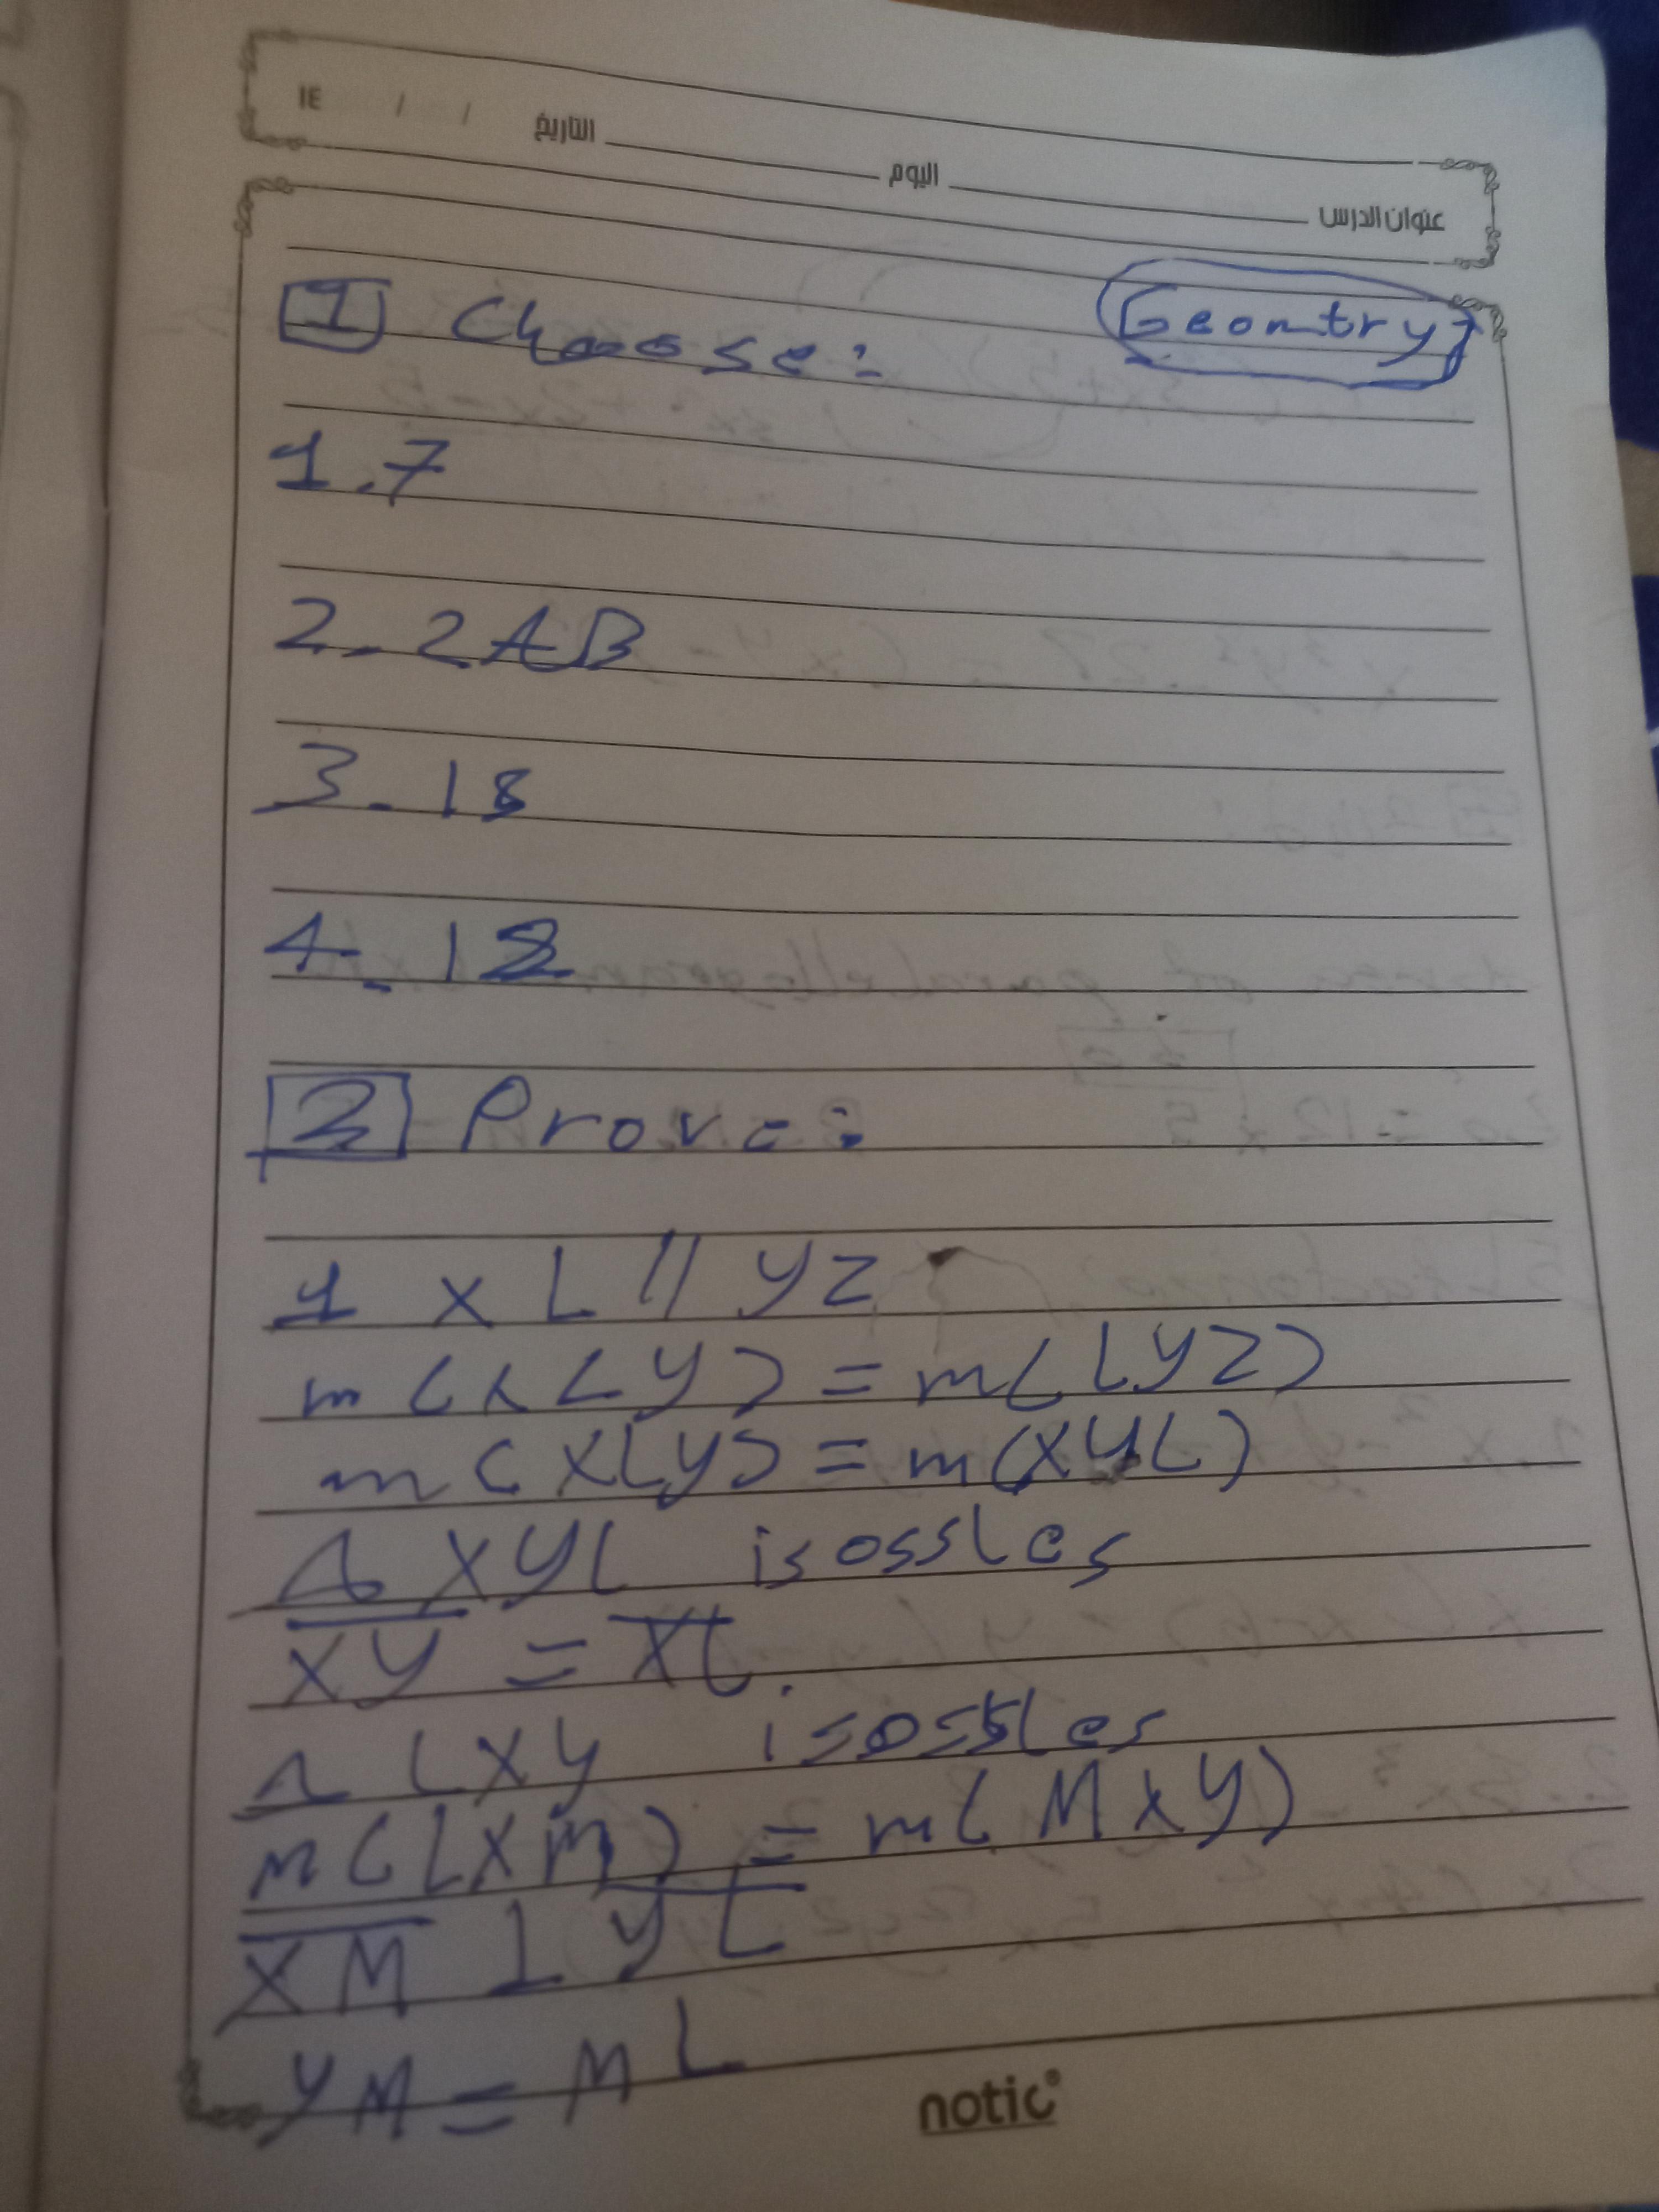 ١٤ / / التاريخ اليوم عنوان الدرس
1 Choose: Geomtry
1.7
2. 2AB
3. 18
4. 12
2 Prove:
1 XL // YZ
m(XLY) = m(LYZ)
m(XLY) = m(XYL)
Δ XYL isossles
XY = XL
Δ LXY isossles
m(LXM) = m(MXY)
XM ⊥ YL
YM = ML
notic